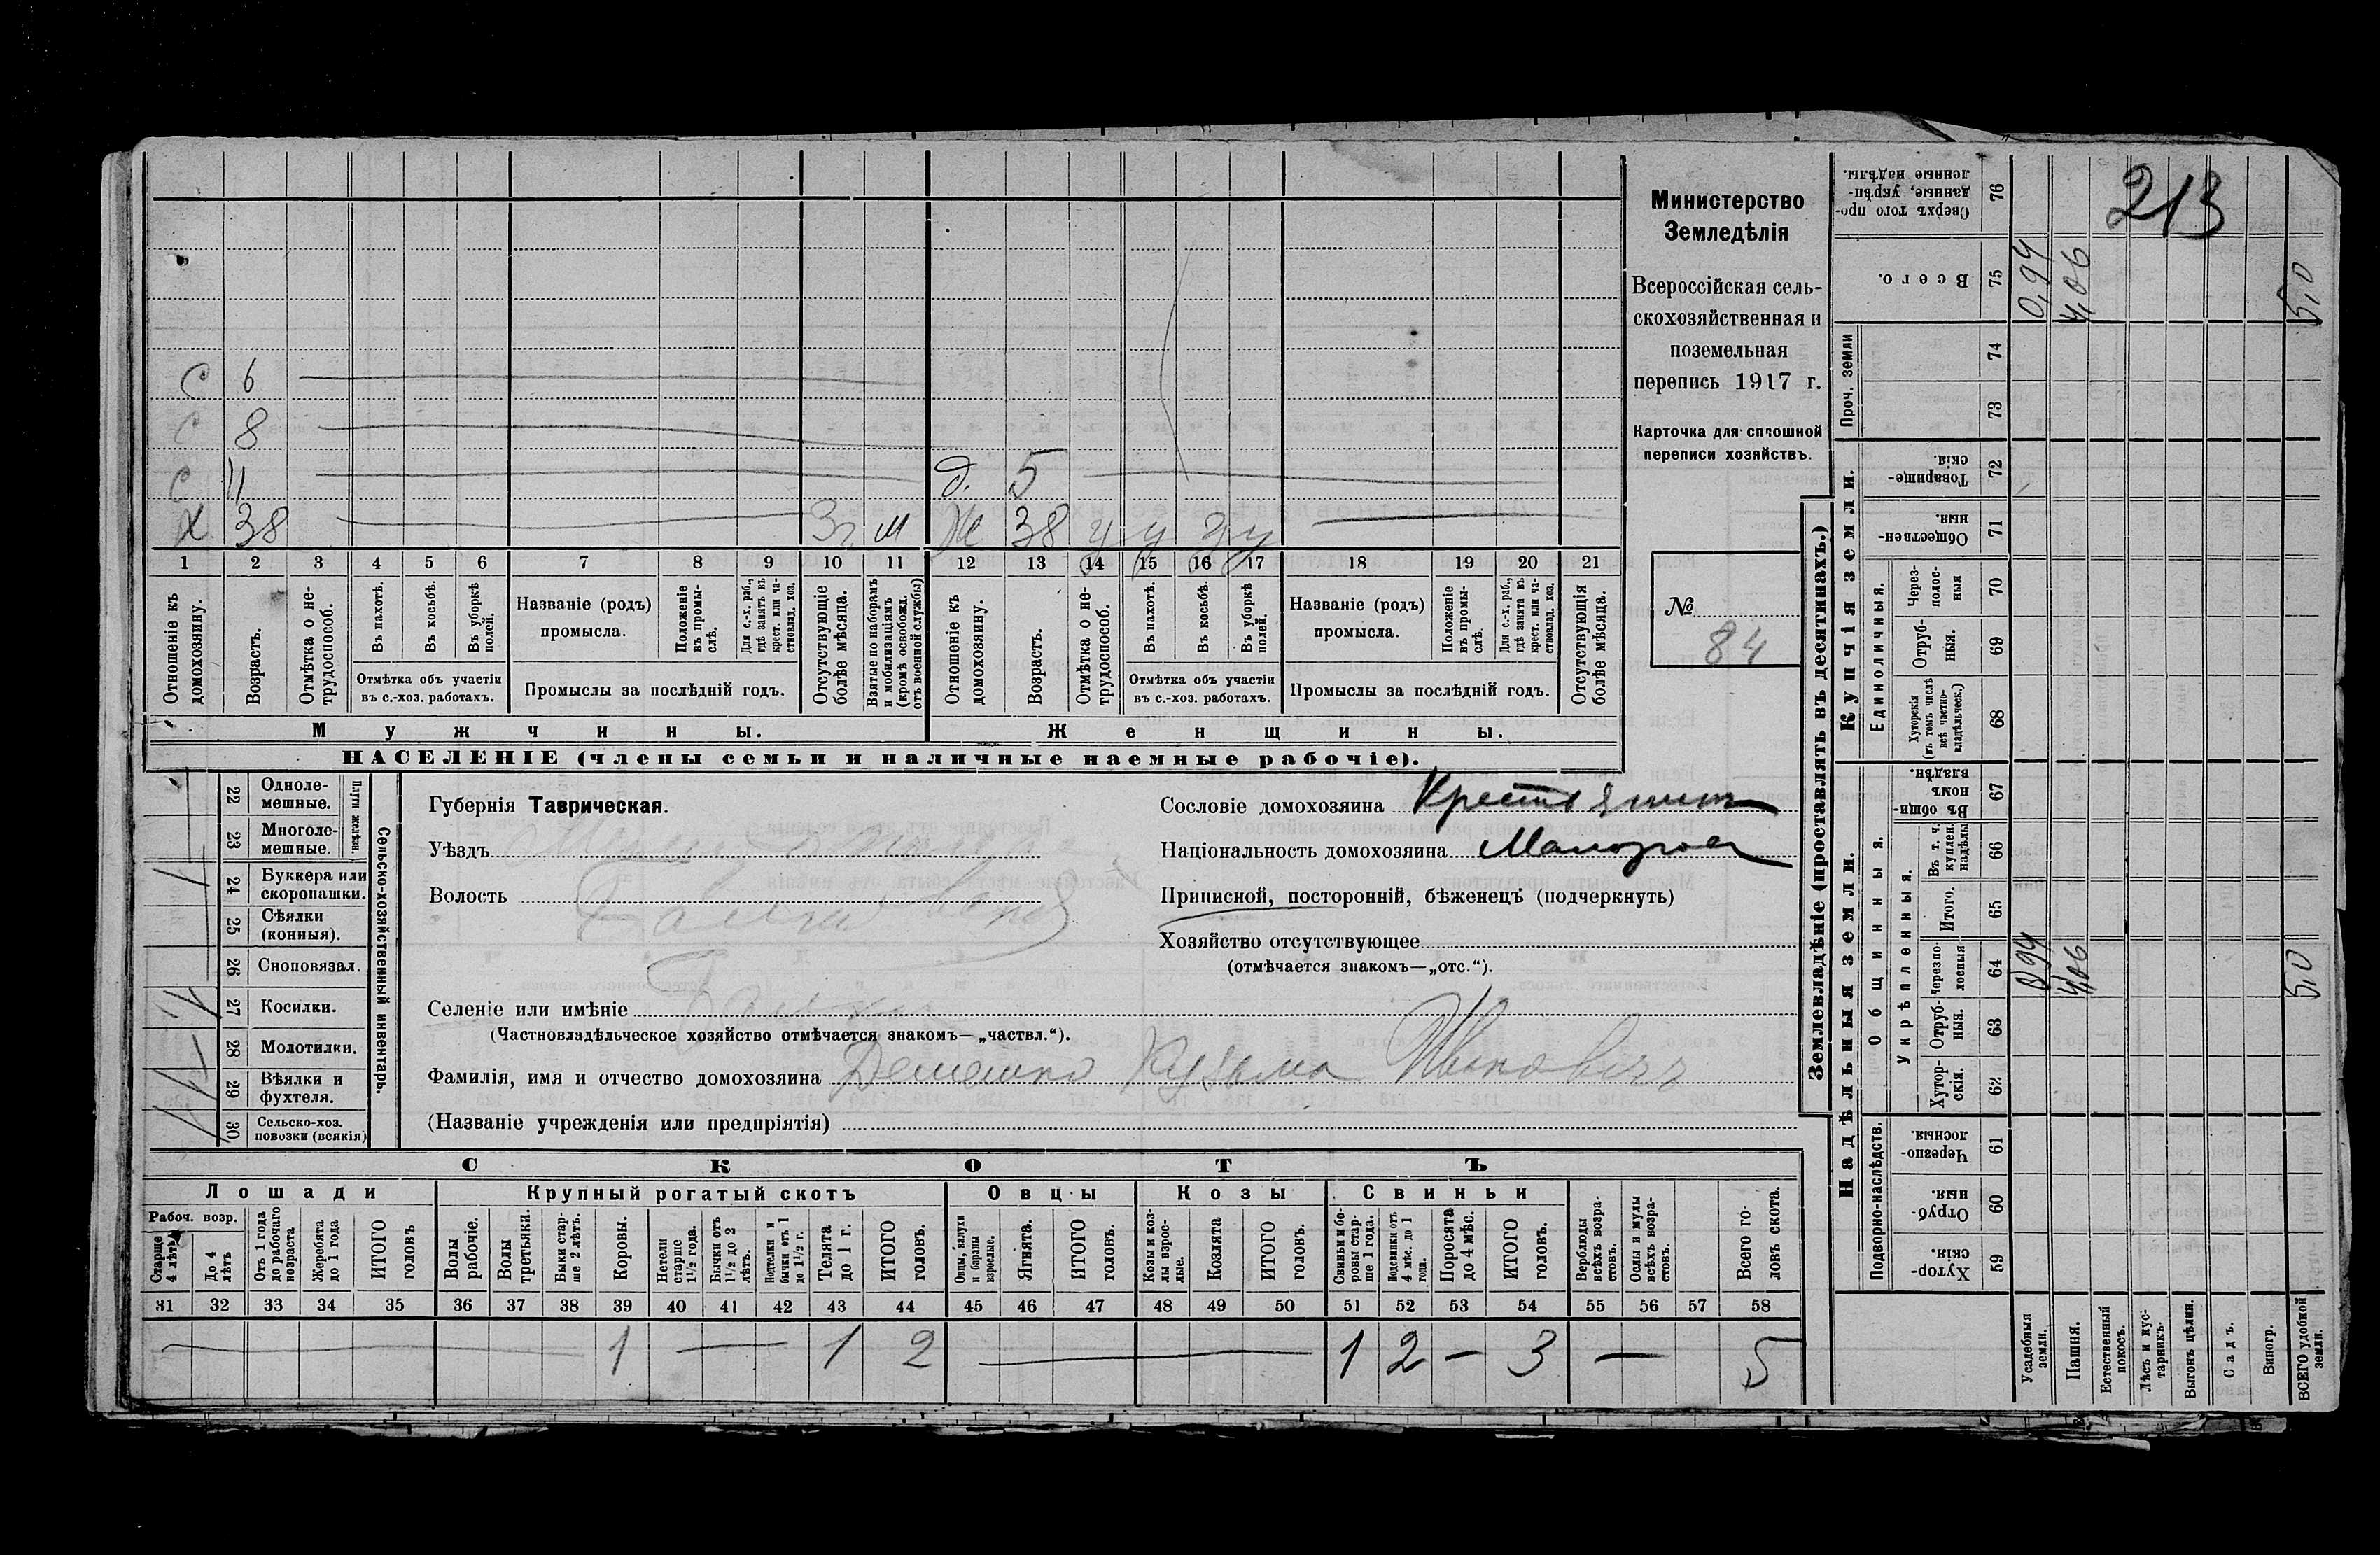 213
Министерство
Земледѣлія
Всероссійская сель-
скохозяйственная и
поземельная
перепись 1917 г.
Карточка для сплошной
переписи хозяйствъ.
№
84
С 6
С 8
С 11 д. 5
Х 38 3 г. м Ж 38 у у у у
1 2 3 4 5 6 7 8 9 10 11 12 13 14 15 16 17 18 19 20 21
Отношеніе къ домохозяину.
Возрастъ.
Отмѣтка о не-трудоспособ.
Въ пахотѣ.
Въ косьбѣ.
Въ уборкѣ полей.
Отмѣтка объ участіи въ с.-хоз. работахъ.
Названіе (родъ) промысла.
Положеніе въ промы-слѣ.
Для с.-х. раб., гдѣ занятъ въ крест. или ча-стновлад. хоз.
Промыслы за послѣдній годъ.
Отсутствующіе болѣе мѣсяца.
Взятые по наборамъ и мобилизаціямъ (кромѣ освобожд. отъ военной службы)
Отношеніе къ домохозяину.
Возрастъ.
Отмѣтка о не-трудоспособ.
Въ пахотѣ.
Въ косьбѣ.
Въ уборкѣ полей.
Отмѣтка объ участіи въ с.-хоз. работахъ.
Названіе (родъ) промысла.
Положеніе въ промы-слѣ.
Для с.-х. раб., гдѣ занята въ крест. или ча-стновлад. хоз.
Промыслы за послѣдній годъ.
Отсутствующія болѣе мѣсяца.
Мужчины. Женщины.
НАСЕЛЕНІЕ (члены семьи и наличные наемные рабочіе).
Сельско-хозяйственный инвентарь.
Плуги желѣзн.
22 Одноле-мешные.
23 Многоле-мешные.
24 Буккера или скоропашки.
25 Сѣялки (конныя).
26 Сноповязал.
27 Косилки.
28 Молотилки.
29 Вѣялки и фухтеля.
30 Сельско-хоз. повозки (всякія)
Губернія Таврическая.
Уѣздъ
Волость
Селеніе или имѣніе
(Частновладѣльческое хозяйство отмѣчается знакомъ—„частвл.“).
Фамилія, имя и отчество домохозяина Кузьма Иванович
(Названіе учрежденія или предпріятія)
Сословіе домохозяина Крестьянинъ
Національность домохозяина Малорос
Приписной, посторонній, бѣженецъ (подчеркнуть)
Хозяйство отсутствующее
(отмѣчается знакомъ—„отс.“).
СКОТЪ
Лошади Крупный рогатый скотъ Овцы Козы Свиньи
Рабоч. возр.
Старше 4 лѣтъ
До 4 лѣтъ
Отъ 1 года до рабочаго возраста
Жеребята до 1 года
ИТОГО головъ
Волы рабочіе.
Волы третьяки.
Быки стар-ше 2 лѣтъ.
Коровы.
Нетели старше 1½ года.
Бычки отъ 1½ до 2 лѣтъ.
Подтелки и бычки отъ 1 до 1½ г.
Телята до 1 г.
ИТОГО головъ.
Овцы, валухи и бараны взрослые.
Ягнята.
ИТОГО головъ.
Козы и коз-лы взрос-лые.
Козлята
ИТОГО головъ.
Свиньи и бо-ровы стар-ше 1 года.
Подсвинки отъ 4 мѣс. до 1 года.
Поросята до 4 мѣс.
ИТОГО головъ.
Верблюды всѣхъ возра-стовъ.
Ослы и мулы всѣхъ возра-стовъ.
Всего го-ловъ скота.
31 32 33 34 35 36 37 38 39 40 41 42 43 44 45 46 47 48 49 50 51 52 53 54 55 56 57 58
1 — 1 2 — 1 2 — 3 — 5
Землевладѣніе (проставлять въ десятинахъ.)
Надѣльныя земли. Купчія земли. Проч. земли
Подворно-наслѣдств.
Общинныя.
Укрѣпленныя.
Единоличныя.
Хутор-скія. 59
Отруб-ныя. 60
Черезпо-лосныя. 61
Хутор-скія. 62
Отруб-ныя. 63
Черезпо-лосныя 64
Итого. 65
Въ т. ч. куплен. надѣлы 66
Въ общи-номъ владѣн. 67
Хуторскія (въ томъ числѣ всѣ частно-владѣльческ.) 68
Отруб-ныя. 69
Через-полос-ныя 70
Обществен-ныя. 71
Товарище-скія. 72
73
74
Всего. 75
Сверхъ того про-данные, укрѣп-ленные надѣлы. 76
Усадебныя земли. 0,94 0,94
Пашня. 4,06 4,06
Естественный покосъ.
Лѣсъ и кус-тарникъ.
Выгонъ цѣлин.
Садъ.
Виногр.
ВСЕГО удобной земли. 5,0 5,0